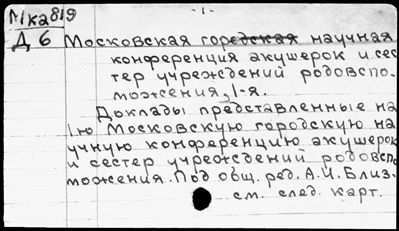 Мка819
- 1 -
Д 6 Московская городская научная
конференция акушерок и сес
тер учреждений родовспо-
можения, 1-я.
Доклады представленные на
1ю Московскую городскую на
учную конференцию акушерок
и сестер учреждений родовспо
можения. Под общ. ред. А.И. Близ.
см. след. карт.